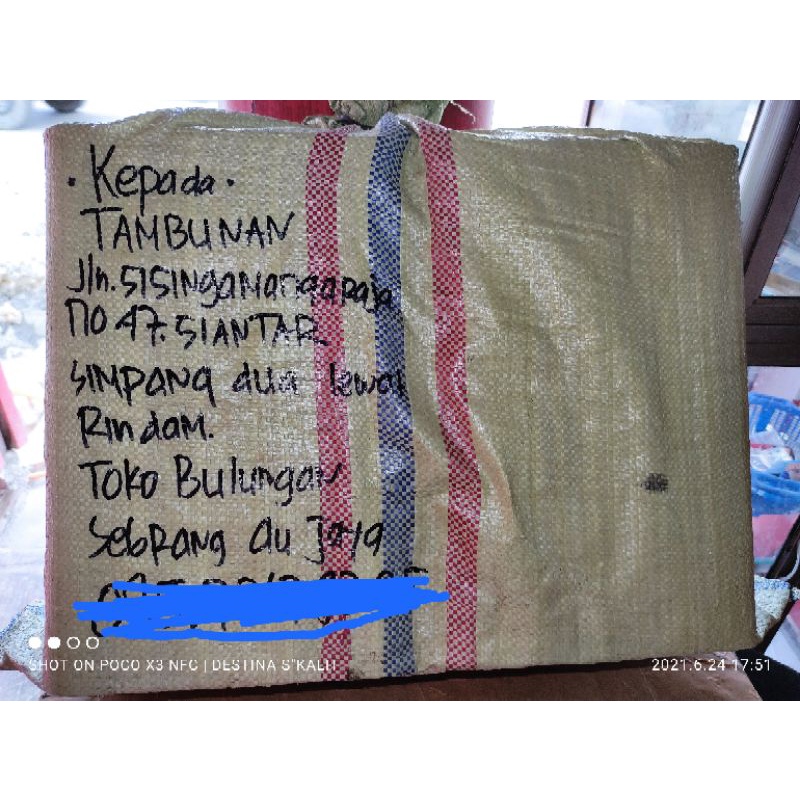 . Kepada .
TAMBUNAN
Jln. SISINGAMANGARAJA
NO 47. SIANTAR
SIMPANG dua lewat
Rindam.
Toko Bulungan
SebRANG du Jaya
SHOT ON POCO X3 NFC | DESTINA S'KALIT
2021.6.24 17:51